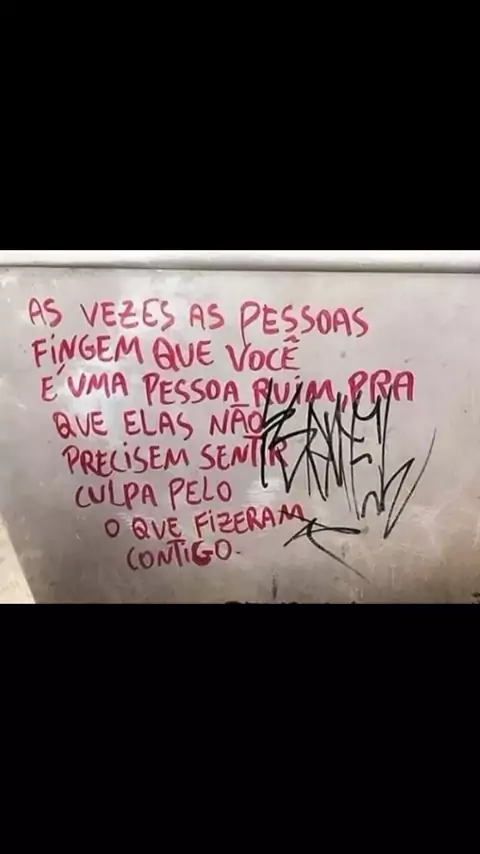 AS VEZES AS PESSOAS
FINGEM QUE VOCÊ
É UMA PESSOA RUIM, PRA
QUE ELAS NÃO
PRECISEM SENTIR
CULPA PELO
O QUE FIZERAM
CONTIGO.